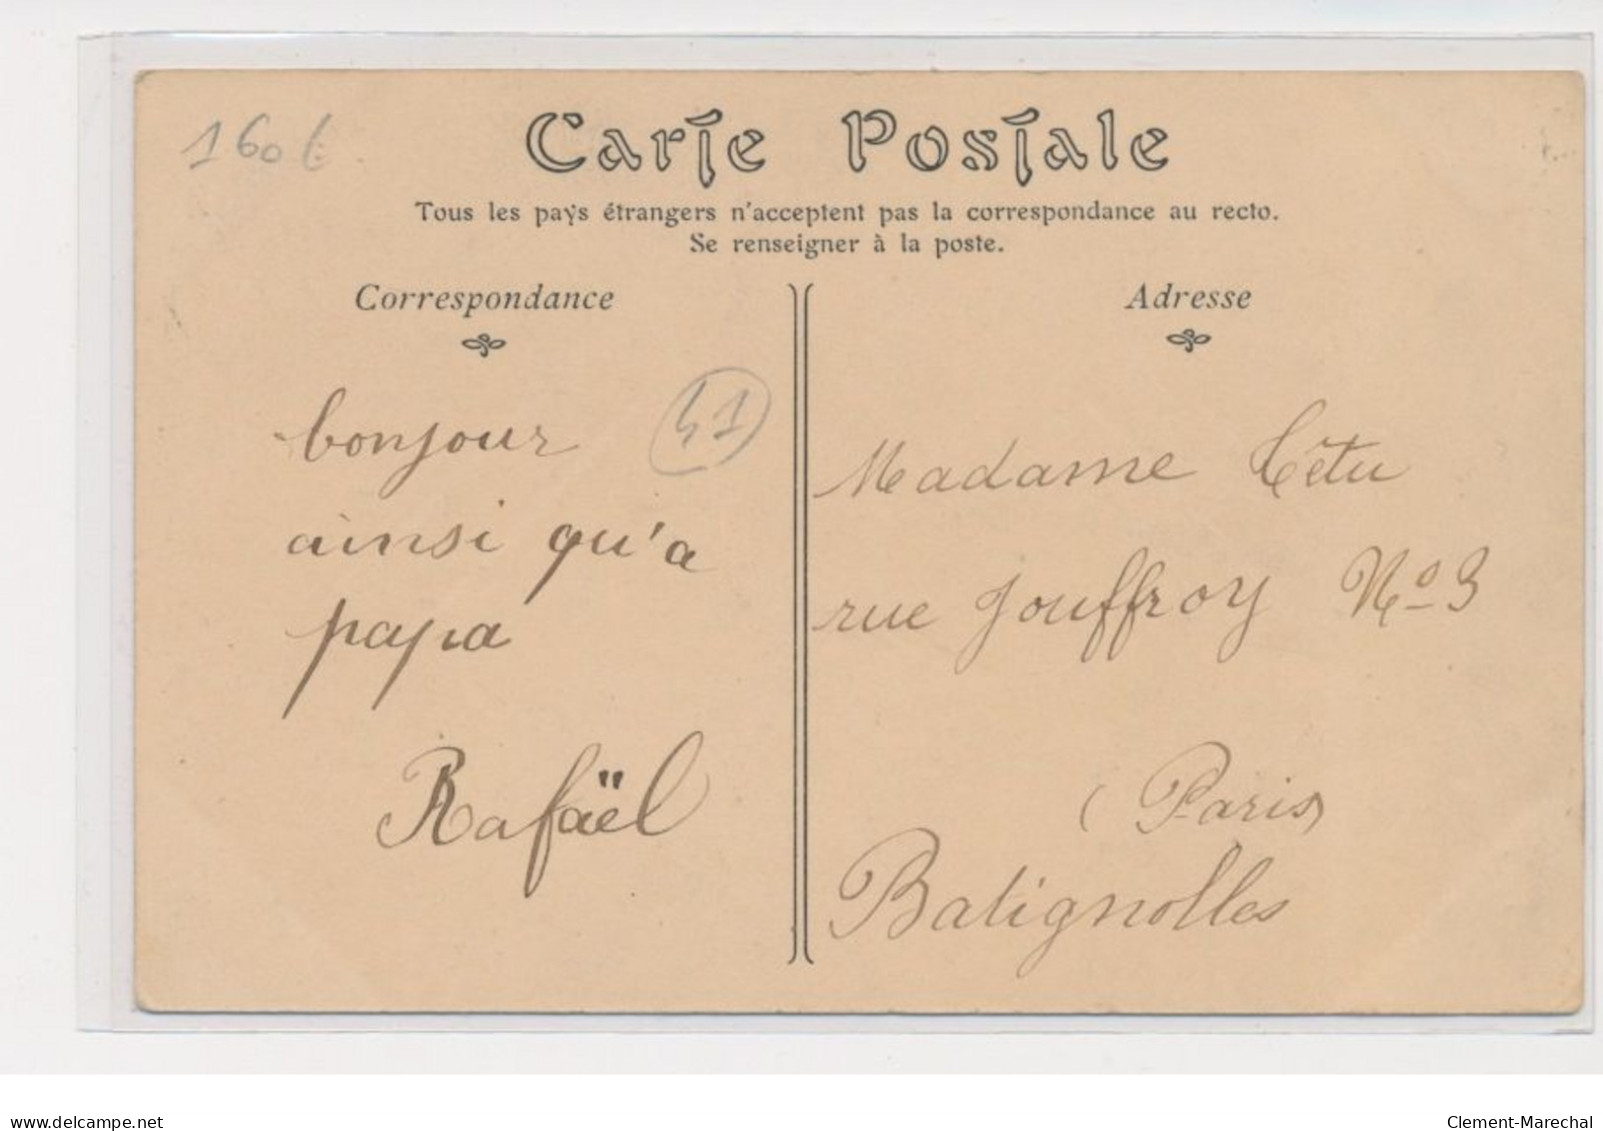 160 €
Carte Postale
Tous les pays étrangers n'acceptent pas la correspondance au recto.
Se renseigner à la poste.
Correspondance
41
bonjour
ainsi qu'a
papa
Rafaël
Adresse
Madame Têtu
rue Jouffroy No 3
(Paris)
Batignolles
www.delcampe.net
Clement-Marechal